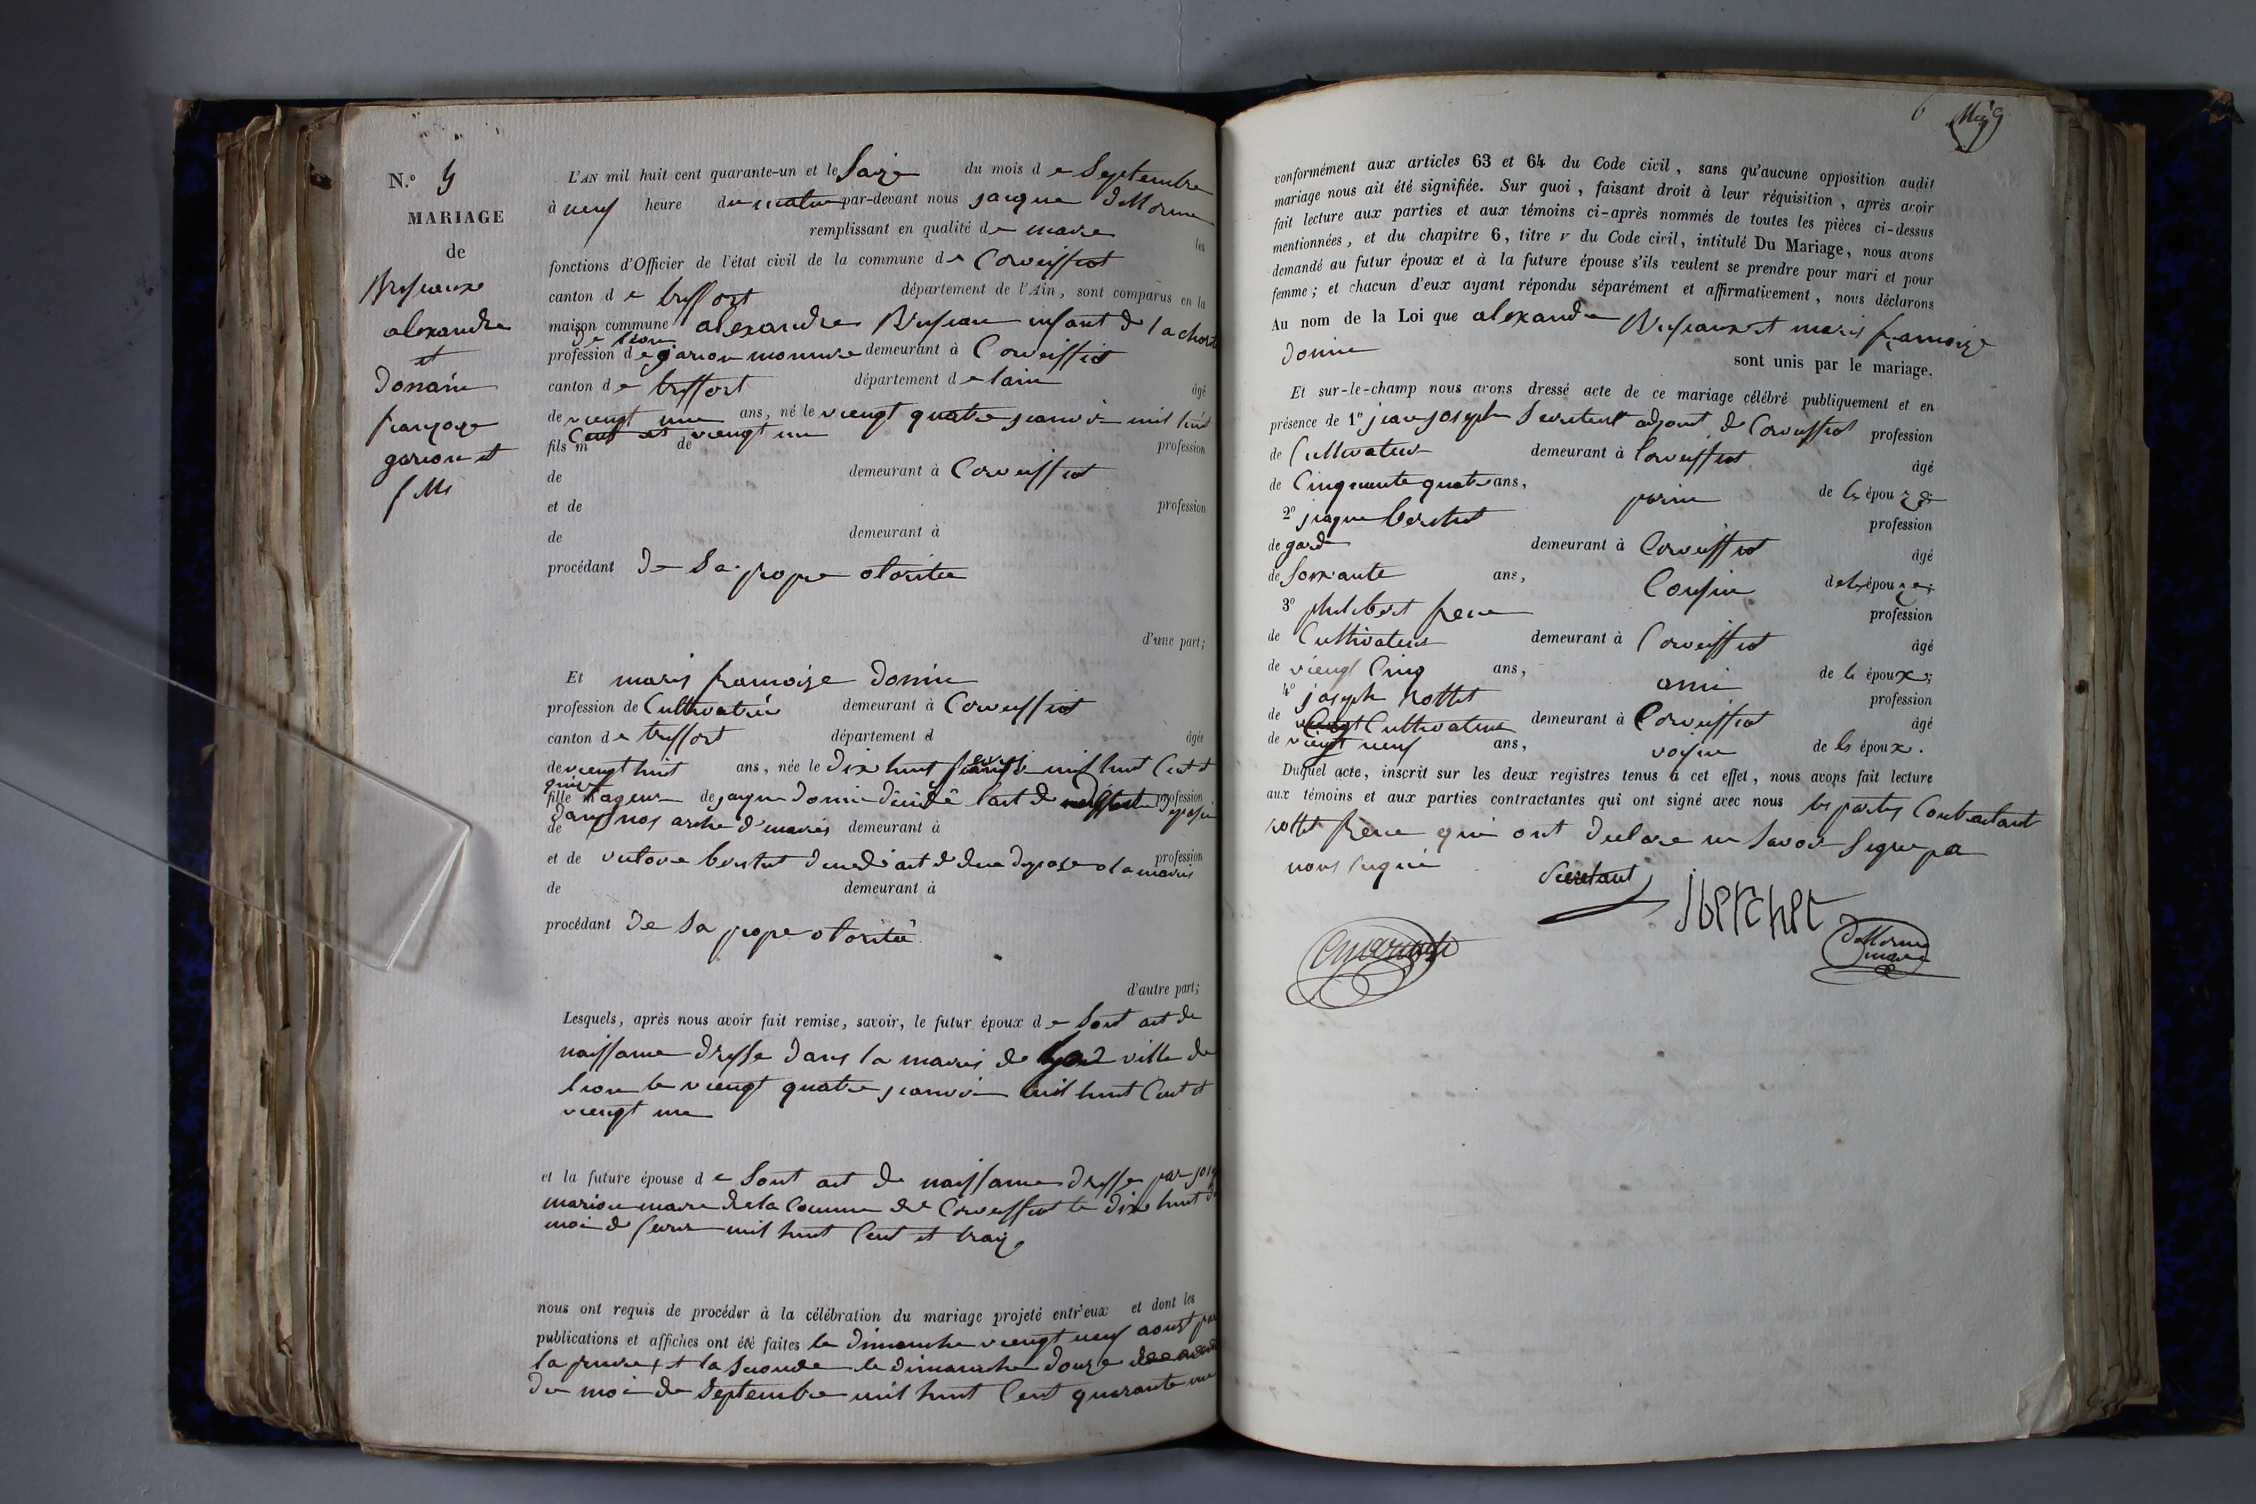 N.º 9
MARIAGE
de
alexandre
et
Domain
françoise
garson et
fille
L'AN mil huit cent quarante-un et le Saize du mois de Septembre
à neuf heure du matin par-devant nous jacque
remplissant en qualité de maire les
fonctions d'Officier de l'état civil de la commune de Corveissiat
canton de treffort département de l'Ain, sont comparus en la
maison commune alexandre enfant de la
de lion
profession de garson demeurant à Corveissiat
canton de treffort département de lain âgé
de viengt une ans, né le viengt quatre janvie mil huit
Cent et viengt un
fils m de profession
de demeurant à Corveissiat
et de profession
de demeurant à
procédant de Sa prope otoritée
d'une part;
Et marie francoise Donin
profession de Cultivatrie demeurant à Corveissiat
canton de treffort département d âgée
de viengt huit ans, née le dix huit mil huit Cent et
fille mageur de jaque Donin l'act de profession
dans nos arche d'mairie
de demeurant à
et de act de dece depose a la mairie profession
de demeurant à
procédant de Sa prope otoritée
d'autre part;
Lesquels, après nous avoir fait remise, savoir, le futur époux de Sont act de
naissance dresse dans la mairie de ville de
lion le viengt quatre janvie mil huit Cent et
viengt un
et la future épouse de Sont act de naissance dresse par
marion maire de la Comune de Corveissiat le dix huit
moi de mil huit Cent et traize
nous ont requis de procéder à la célébration du mariage projeté entr'eux et dont les
publications et affiches ont été faites le dimanche viengt neuf aoust
la et la Seconde le dimanche douze
du moi de Septembre mil huit Cent quarante un
6
conformément aux articles 63 et 64 du Code civil, sans qu'aucune opposition audit
mariage nous ait été signifiée. Sur quoi, faisant droit à leur réquisition, après avoir
fait lecture aux parties et aux témoins ci-après nommés de toutes les pièces ci-dessus
mentionnées, et du chapitre 6, titre v du Code civil, intitulé Du Mariage, nous avons
demandé au futur époux et à la future épouse s'ils veulent se prendre pour mari et pour
femme; et chacun d'eux ayant répondu séparément et affirmativement, nous déclarons
Au nom de la Loi que alexandre et marie françoise
donin sont unis par le mariage.
Et sur-le-champ nous avons dressé acte de ce mariage célébré publiquement et en
présence de 1º jean joseph adjoint de Corveissiat profession
de Cultivateur demeurant à Corveissiat âgé
de Cinquante quatre ans, de la épouze
2º jaque berchet profession
de gard demeurant à Corveissiat âgé
de Soixante ans, Cousin de la épouze;
3º philibert profession
de Cultivateur demeurant à Corveissiat âgé
de viengt Cinq ans, ami de l époux;
4º joseph rottet profession
de Cultivateur demeurant à Corveissiat âgé
de viengt neuf ans, voisin de l époux.
Duquel acte, inscrit sur les deux registres tenus à cet effet, nous avons fait lecture
aux témoins et aux parties contractantes qui ont signé avec nous les parties Contractant
rottet qui ont declare ne Savoir Signe
nous
jberchet
maire